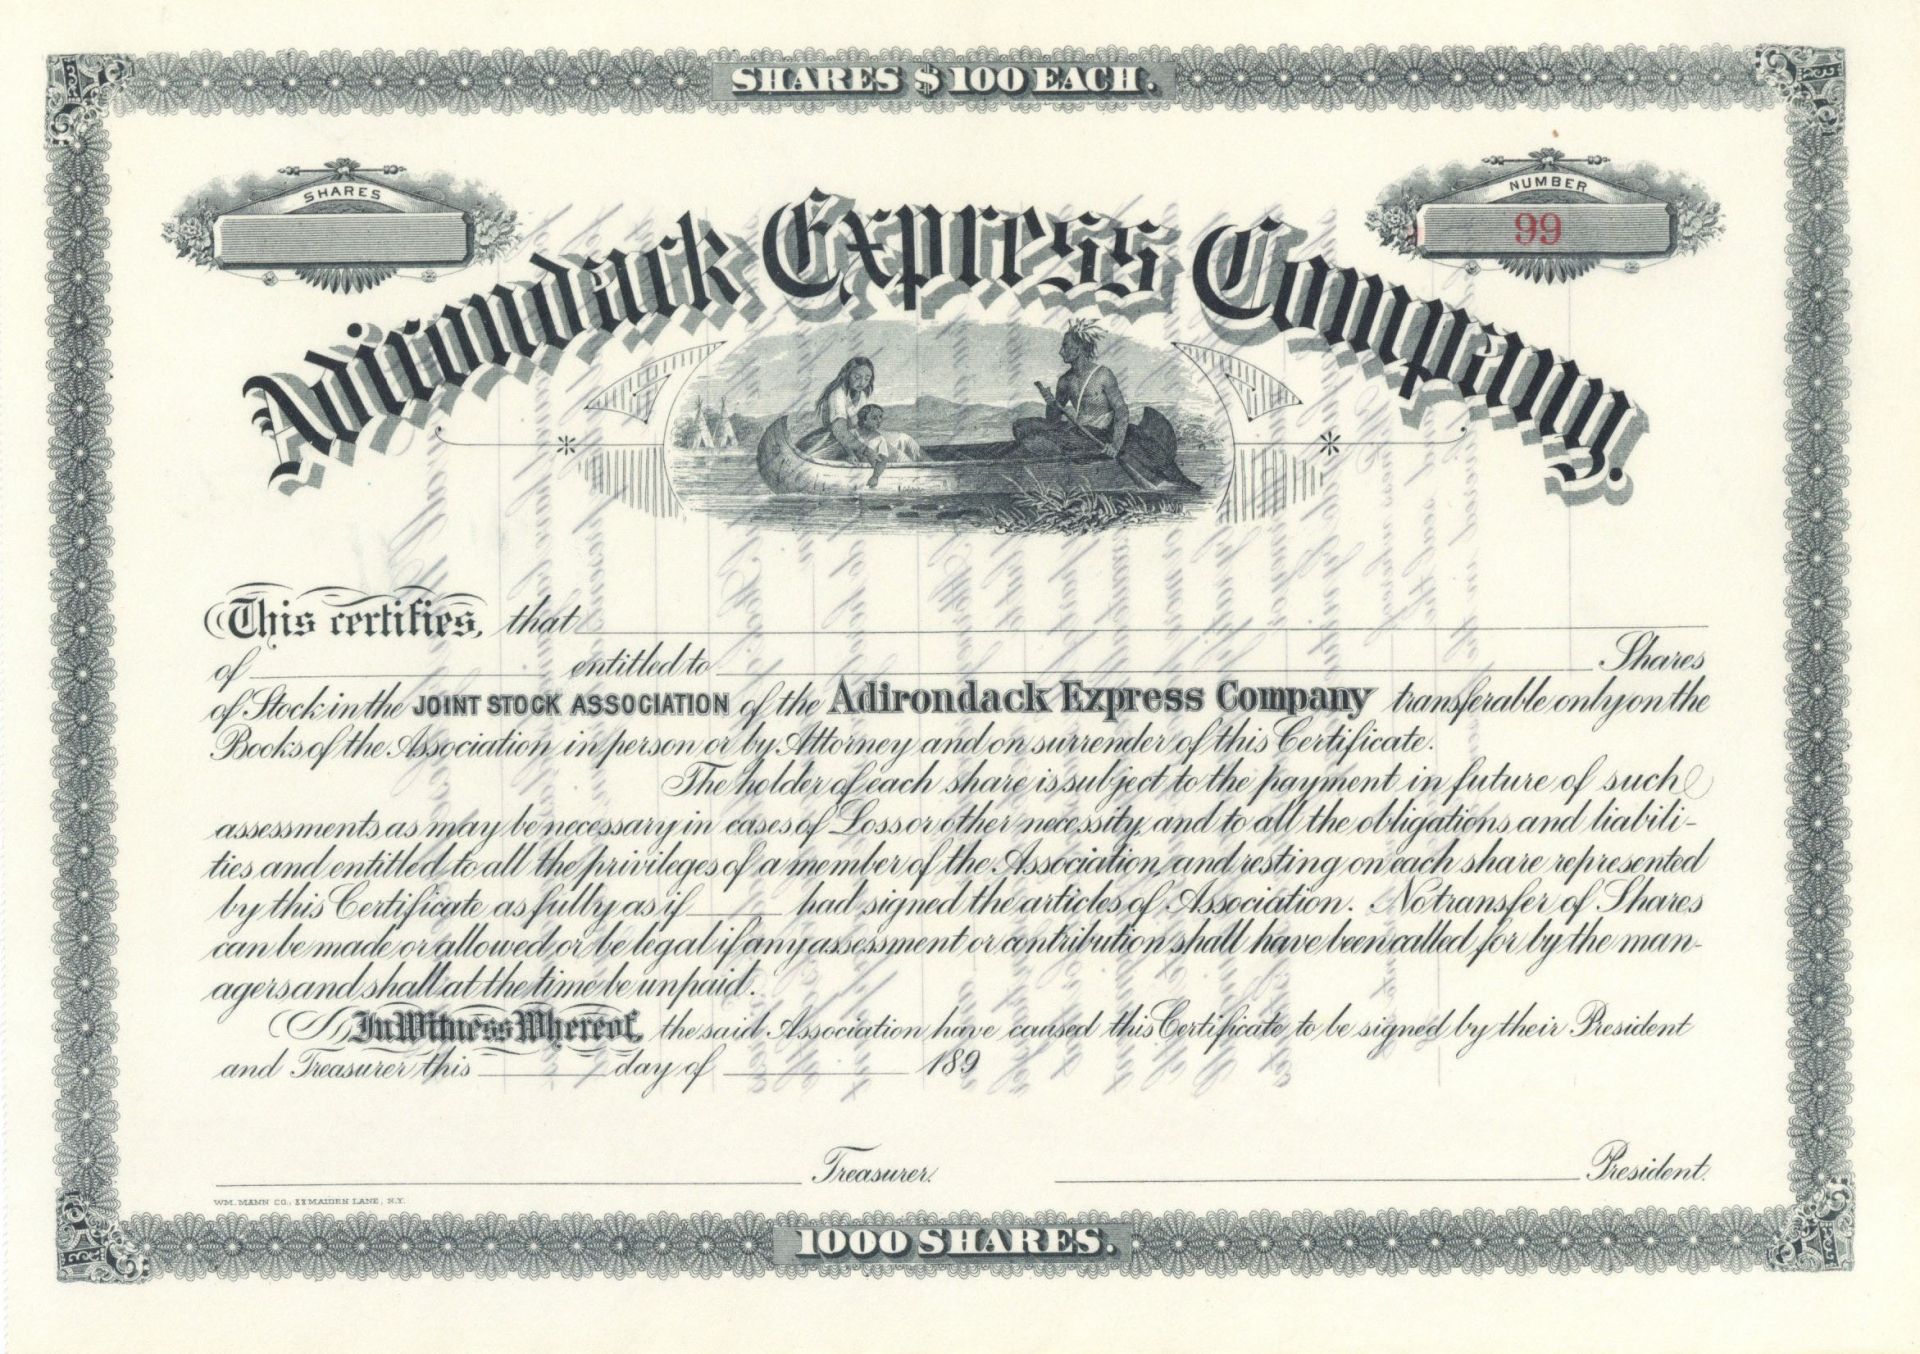 SHARES $100 EACH.
SHARES
NUMBER
99
Adirondack Express Company.
This certifies, that
of entitled to Shares
of Stock in the JOINT STOCK ASSOCIATION of the Adirondack Express Company transferable only on the
Books of the Association in person or by Attorney and on surrender of this Certificate.
The holder of each share is subject to the payment in future of such
assessments as may be necessary in cases of Loss or other necessity, and to all the obligations and liabili-
ties and entitled to all the privileges of a member of the Association, and resting on each share represented
by this Certificate as fully as if had signed the articles of Association. No transfer of Shares
can be made or allowed or be legal if any assessment or contribution shall have been called for by the man-
agers and shall at the time be unpaid.
In Witness Whereof, the said Association have caused this Certificate to be signed by their President
and Treasurer this day of 189
Treasurer.
President.
WM. MANN CO., MAIDEN LANE, N.Y.
1000 SHARES.